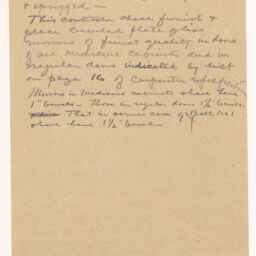 & sprigged —
This contractor shall furnish &
place beveled plate glass
mirrors of finest quality in doors
of all medicine cabinets and in
regular doors indicated by list
on page 16 of carpenter specfctn
Mirrors in medicine cabinets shall have
1" bevels — Those in regular doors 1½" bevels.
That in corner case of Bath No 1
shall have 1½" bevel —